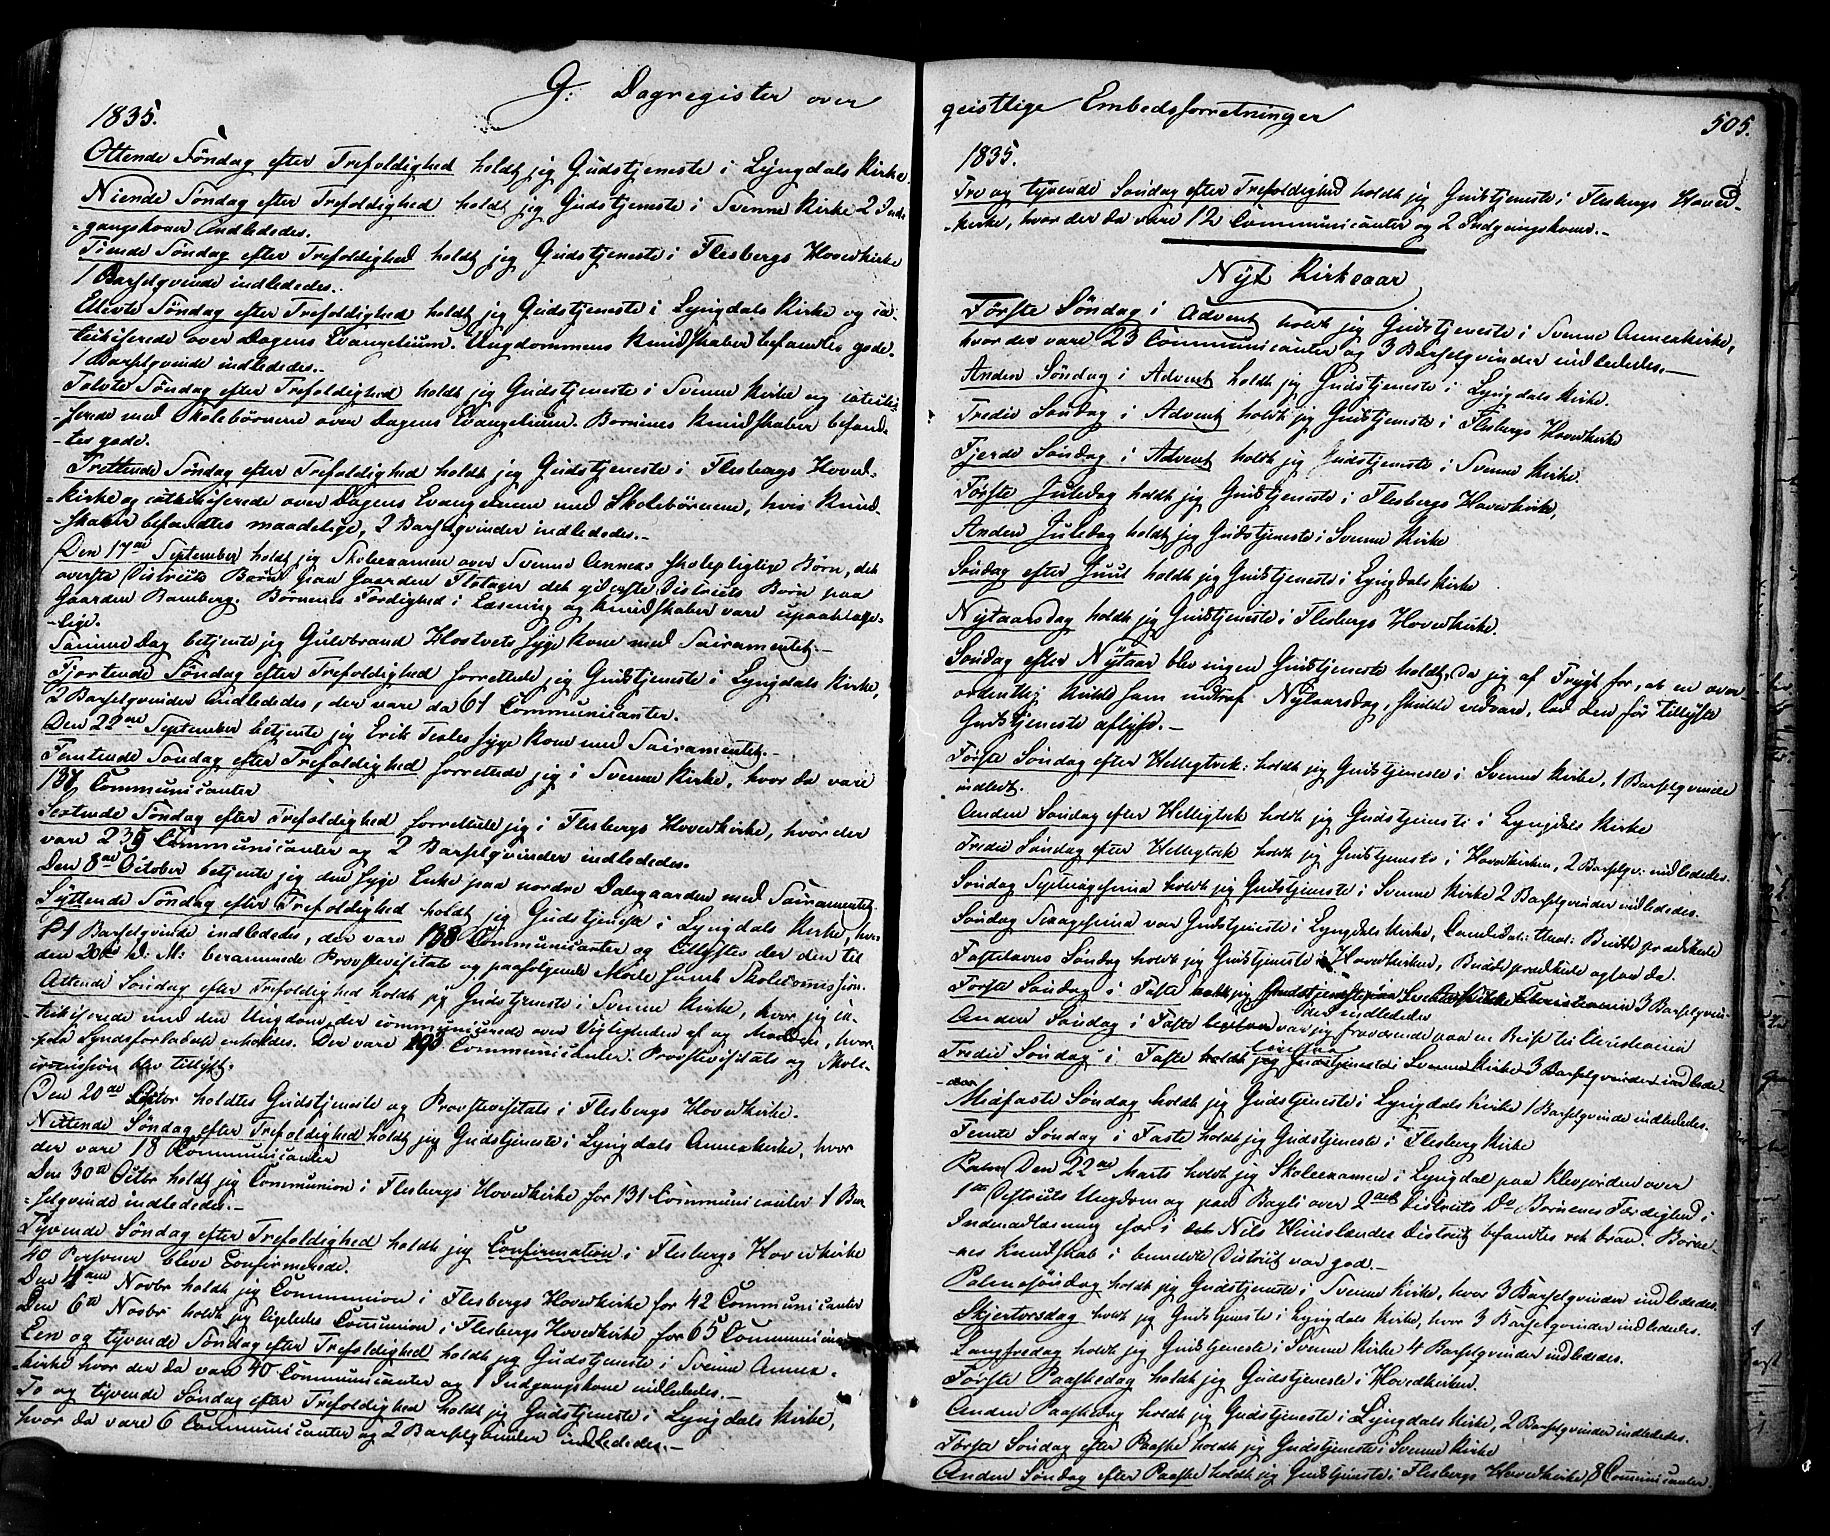 G: Dagregister over
1835.
Ottende Søndag efter Trefoldighed holdt jeg Gudstjeneste i Lyngdals Kirke.
Niende Søndag efter Trefoldighed holdt jeg Gudstjeneste i Svenne Kirke 2 Ind-
-gangskoner indlededes.
Tiende Søndag efter Trefoldighed holdt jeg Gudstjeneste i Flesbergs Hovedkirke
1 Barselqvinde indlededes.
Elevte Søndag efter Trefoldighed holdt jeg Gudstjeneste i Lyngdals Kirke og ca-
tekiserede over Dagens Evangelium. Ungdommens Kundskaber befandtes gode.
1 Barselqvinde indlededes.
Tolvte Søndag efter Trefoldighed holdt jeg Gudstjeneste i Svenne Kirke og catechi-
-serede med Skolebørnene over Dagens Evangelium. Børnenes Kundskaber befand-
-tes gode.
Trettende Søndag efter Trefoldighed holdt jeg Gudstjeneste i Flesbergs Hoved-
-kirke og catekiserede over Dagens Evangelium med Skolebørnene, hvis Kund-
-skaber befandtes maadelige, 2 Barselqvinder indlededes.-
Den 17de September holdt jeg Skoleexamen over Svenne Annex's skolepligtige Børn, det
øverste Districts Børn paa Gaarden Flotager det yderste Districts Børn paa
Gaarden Bamberg. Børnenes Færdighed i Læsning og Kundskaber vare upaaklage-
-lige.
Samme Dag betjente jeg Gulbrand Hostvets syge Kone med Sacramentet.-
Fjortende Søndag efter Trefoldighed forrettede jeg Gudstjeneste i Lyngdals Kirke,
2 Barselqvinder indlededes, der vare da 61 Communicanter.
Den 22de September betjente jeg Erik Teiles syge Kone med Sacramentet.-
Femtende Søndag efter Trefoldighed forrettede jeg i Svenne Kirke, hvor da vare
137 Communicanter
Sextende Søndag efter Trefoldighed forrettede jeg i Flesbergs Hovedkirke, hvor der
vare 235 Communicanter og 2 Barselqvinder indlededes.
Den 8de October betjente jeg den syge Enke paa nordre Dalegaarden med Sacramentet
Syttende Søndag efter Trefoldighed holdt jeg Gudstjeneste i Lyngdals Kirke, hvor
1 Barselqvinde indlededes, der vare 138 Communicanter og tillystes der den til
den 20de d: M: berammede Provstevisitats og paafølgende Møde samt Skolecomission.
Attende Søndag efter Trefoldighed holdt jeg Gudstjeneste i Svenne Kirke, hvor jeg ca-
-tekiserede med den Ungdom, der communicerede over Vigtigheden af og Maaden, hvor-
-paa Syndsforladelse erholdes. Der vare 193 Communicanter. Provstevisitats og Skole-
comission blev tillyst.
Den 20de Octbr holdtes Gudstjeneste og Provstevisitats i Flesbergs Hovedkirke.
Nittende Søndag efter Trefoldighed holdt jeg Gudstjeneste i Lyngdals Annexkirke, hvor
der vare 18 Communicanter
Den 30te Octbr holdt jeg Communion i Flesbergs Hovedkirke for 131 Communicanter 1 Bar-
-selqvinde indlededes.-
Tyvende Søndag efter Trefoldighed holdt jeg Confirmation i Flesbergs Hovedkirke
40 Personer bleve Confirmerede.
Den 4de Novbr holdt jeg Communion i Flesbergs Hovedkirke for 42 Communicanter
Den 6te Novbr holdt jeg ligeledes Communion i Flesbergs Hovedkirke for 65 Communicanter
Een og tyvende Søndag efter Trefoldighed holdt jeg Gudstjeneste i Svenne Annex-
-kirke hvor der da vare 40 Communicanter og 1 Indgangskone indlededes.-
To og tyvende Søndag efter Trefoldighed holdt jeg Gudstjeneste i Lyngdals Kirke,
hvor da vare 6 Communicanter og 2 Barselqvinder indlededes.-
geistlige Embedsforretninger
505.
1835.
Tre og tyvende Søndag efter Trefoldighed holdt jeg Gudstjeneste i Flesbergs Hoved-
-kirke, hvor der da vare 12 Communicanter og 2 Indgangskoner.-
Nyt Kirkeaar
Første Søndag i Advent holdt jeg Gudstjeneste i Svenne Annexkirke,
hvor der vare 23 Communicanter og 3 Barselqvinder indlededes.-
Anden Søndag i Advent holdt jeg Gudstjeneste i Lyngdals Kirke.
Tredie Søndag i Advent holdt jeg Gudstjeneste i Flesbergs Hovedkirke
Fjerde Søndag i Advent holdt jeg Gudstjeneste i Svenne Kirke.
Første Juledag holdt jeg Gudstjeneste i Flesbergs Hovedkirke,
Anden Juledag holdt jeg Gudstjeneste i Svenne Kirke
Søndag efter Juul holdt jeg Gudstjeneste i Lyngdals Kirke
Nytaarsdag holdt jeg Gudstjeneste i Flesbergs Hovedkirke.
Søndag efter Nytaar blev ingen Gudstjeneste holdt, da jeg af Frygt for, at en over-
ordentlig Kulde som indtraf Nytaarsdag, skulde vedvare, lod den før tillyste
Gudstjeneste aflyse.-
Første Søndag efter Helligtrek: holdt jeg Gudstjeneste i Svenne Kirke, 1 Barselqvinde
indledt.
Anden Søndag efter Helligtrek holdt jeg Gudstjeneste i Lyngdals Kirke
Tredie Søndag efter Helligtrek holdt jeg Gudstjeneste i Hovedkirken, 2 Barselqv: indlededes.
Søndag Septuagesima holdt jeg Gudstjeneste i Svenne Kirke 2 Barselqvinder indlededes.
Søndag Sexagesima var Gudstjeneste i Lyngdals Kirke, Candidat: theol: prædikede
Fastelavns Søndag holdt jeg Gudstjeneste i Hovedkirken, prædikede ogsaa da.
Første Søndag i Faste holdt jeg Gudstjeneste paa Svenne Kirke 3 Barselqvin-
der indlededes
Anden Søndag i Faste var jeg fraværende paa en Reise til Christiania
Tredie Søndag i Faste holdt jeg Gudstjeneste i Svenne Kirke 3 Barselqvinder indlede-
-des
Midfaste Søndag holdt jeg Gudstjeneste i Lyngdals Kirke 1 Barselqvinde indlededes.
Femte Søndag i Faste holdt jeg Gudstjeneste i Flesberg Kirke
Den 22de Marts holdt jeg Skoleexamen i Lyngdal paa Klevjorden over
1ste Districts Ungdom og paa Bagli over 2det Districts Do Børnenes Færdighed i
Indenadlæsning især i det Nils Distrikt befandtes ret brav. Børne-
nes Kundskab i benævnte District var god.-
Palmesøndag holdt jeg Gudstjeneste i Svenne Kirke, hvor 3 Barselqvinder indlededes.
Skjertorsdag holdt jeg Gudstjeneste i Lyngdals Kirke, hvor 3 Barselqvinder indlededes.
Langfredag holdt jeg Gudstjeneste i Svenne Kirke 4 Barselqvinder indlededes.
Første Paaskedag holdt jeg Gudstjeneste i Hovedkirken.
Anden Paaskedag holdt jeg Gudstjeneste i Lyngdals Kirke, 2 Barselqvinder indlededes.
Første Søndag efter Paaske holdt jeg Gudstjeneste i Svenne Kirke
Anden Søndag efter Paaske holdt jeg Gudstjeneste i Flesbergs Hovedkirke, 8 Communicanter.